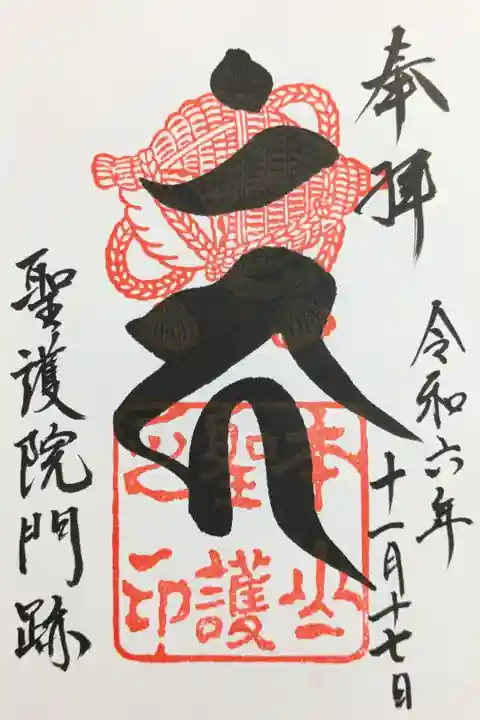 奉拝
令和六年
十一月十七日
本山
聖護
之印
聖護院門跡